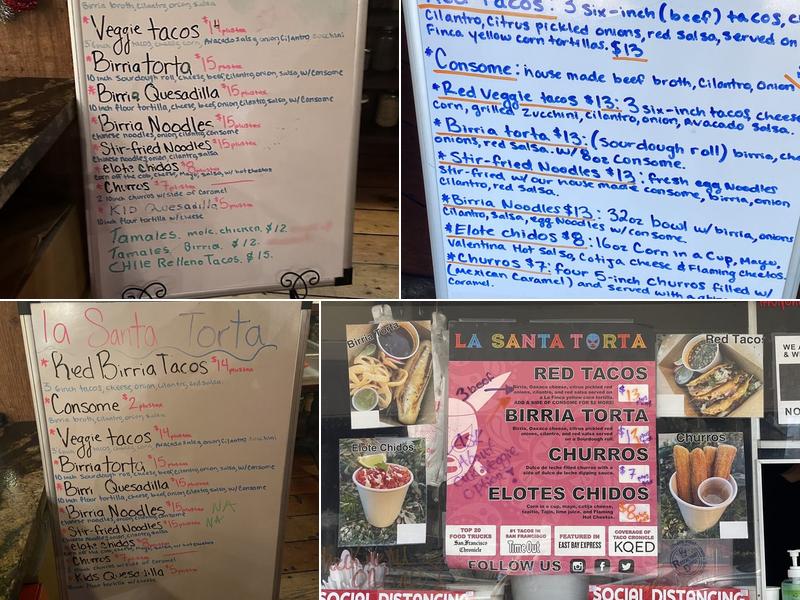 Birria broth, cilantro, onion, salsa
Veggie tacos $14 plus tax
Avocado salsa, onion, cilantro zucchini
Birria torta $15 plus tax
10 inch Sourdough roll, cheese, beef, cilantro, onion, salsa, w/ Consome
Birria Quesadilla $15 plus tax
10 inch flour tortilla, cheese, beef, onion, cilantro, salsa, w/ Consome
Birria Noodles $15 plus tax
chinese noodles, onion, cilantro, consome
Stir-fried Noodles $15 plus tax
chinese noodles, onion, cilantro, salsa
* elote chidos $8 plus tax
corn off the cob, cheese, mayo, salsa, w/ hot cheetos
* Churros $7 plus tax
2 10inch churros w/ side of Caramel
* Kid Quesadilla $5 plus tax
10inch flour tortilla w/ cheese
Tamales. mole. chicken. $12.
Tamales. Birria. $12.
Chile Relleno Tacos. $15.
Red Tacos: 3 six-inch (beef) tacos,
Cilantro, Citrus pickled onions, red salsa, served on
Finca yellow corn tortillas. $13
*Consome: house made beef broth, Cilantro, onion
*Red Veggie tacos $13: 3 six-inch tacos, cheese
corn, grilled zucchini, cilantro, onion, avocado salsa.
*Birria torta $13: (sourdough roll) birria,
onions, red salsa. w/ 8oz consome.
*Stir-fried Noodles $13: fresh egg Noodles
stir-fried w/ our house made consome, birria, onion
cilantro, red salsa.
*Birria Noodles $13: 32oz bowl w/ birria, onions
Cilantro, salsa, egg Noodles w/ consome.
*Elote chidos $8: 16oz Corn in a Cup, Mayo,
Valentina Hot Salsa, Cotija cheese & Flaming cheetos.
*Churros $7: four 5-inch churros filled w/
(Mexican Caramel) and served with a
Caramel.
la Santa Torta
* Red Birria Tacos $14 plus tax
3 6inch tacos, cheese, onion, cilantro, red salsa
* Consome $2 plus tax
Birria broth, cilantro, onion
* Veggie tacos $14 plus tax
Avocado Salsa, onion, cilantro zucchini
* Birria torta $15 plus tax
10 inch Sourdough roll, cheese, beef, cilantro, onion, salsa, w/ Consome
* Birri Quesadilla $15 plus tax
10 inch flour tortilla, cheese, beef, onion, cilantro, salsa, w/ Consome
* Birria Noodles $15 plus tax NA
* Stir-fried Noodles $15 plus tax NA
* elote chidos
* Churros
* Kids Quesadilla $5 plus tax
Birria Torta
Elote Chidos
LA SANTA TORTA
RED TACOS
3 beef
Birria, Oaxaca cheese, citrus pickled red
onions, cilantro, and red salsa served on
a La Finca yellow corn tortilla.
ADD A SIDE OF CONSOME FOR $2 MORE!
$13
BIRRIA TORTA
Birria, Oaxaca cheese, citrus pickled red
onions, cilantro, and red salsa served
on a Sourdough roll.
$13
CHURROS
Dulce de leche filled churros with a
side of dulce de leche dipping sauce.
$7
ELOTES CHIDOS
Corn in a cup, mayo, cotija cheese,
tapitio, Tajin, lime juice, and Flaming
Hot Cheetos.
$8
TOP 20
FOOD TRUCKS
San Francisco
Chronicle
#1 TACOS IN
SAN FRANCISCO
TimeOut
FEATURED IN
EAST BAY EXPRESS
COVERAGE OF
TACO CRONICLE
KQED
FOLLOW US
Red Tacos
Churros
WE A
& W
NO
SOCIAL DISTANCING
SOCIAL DISTANCING